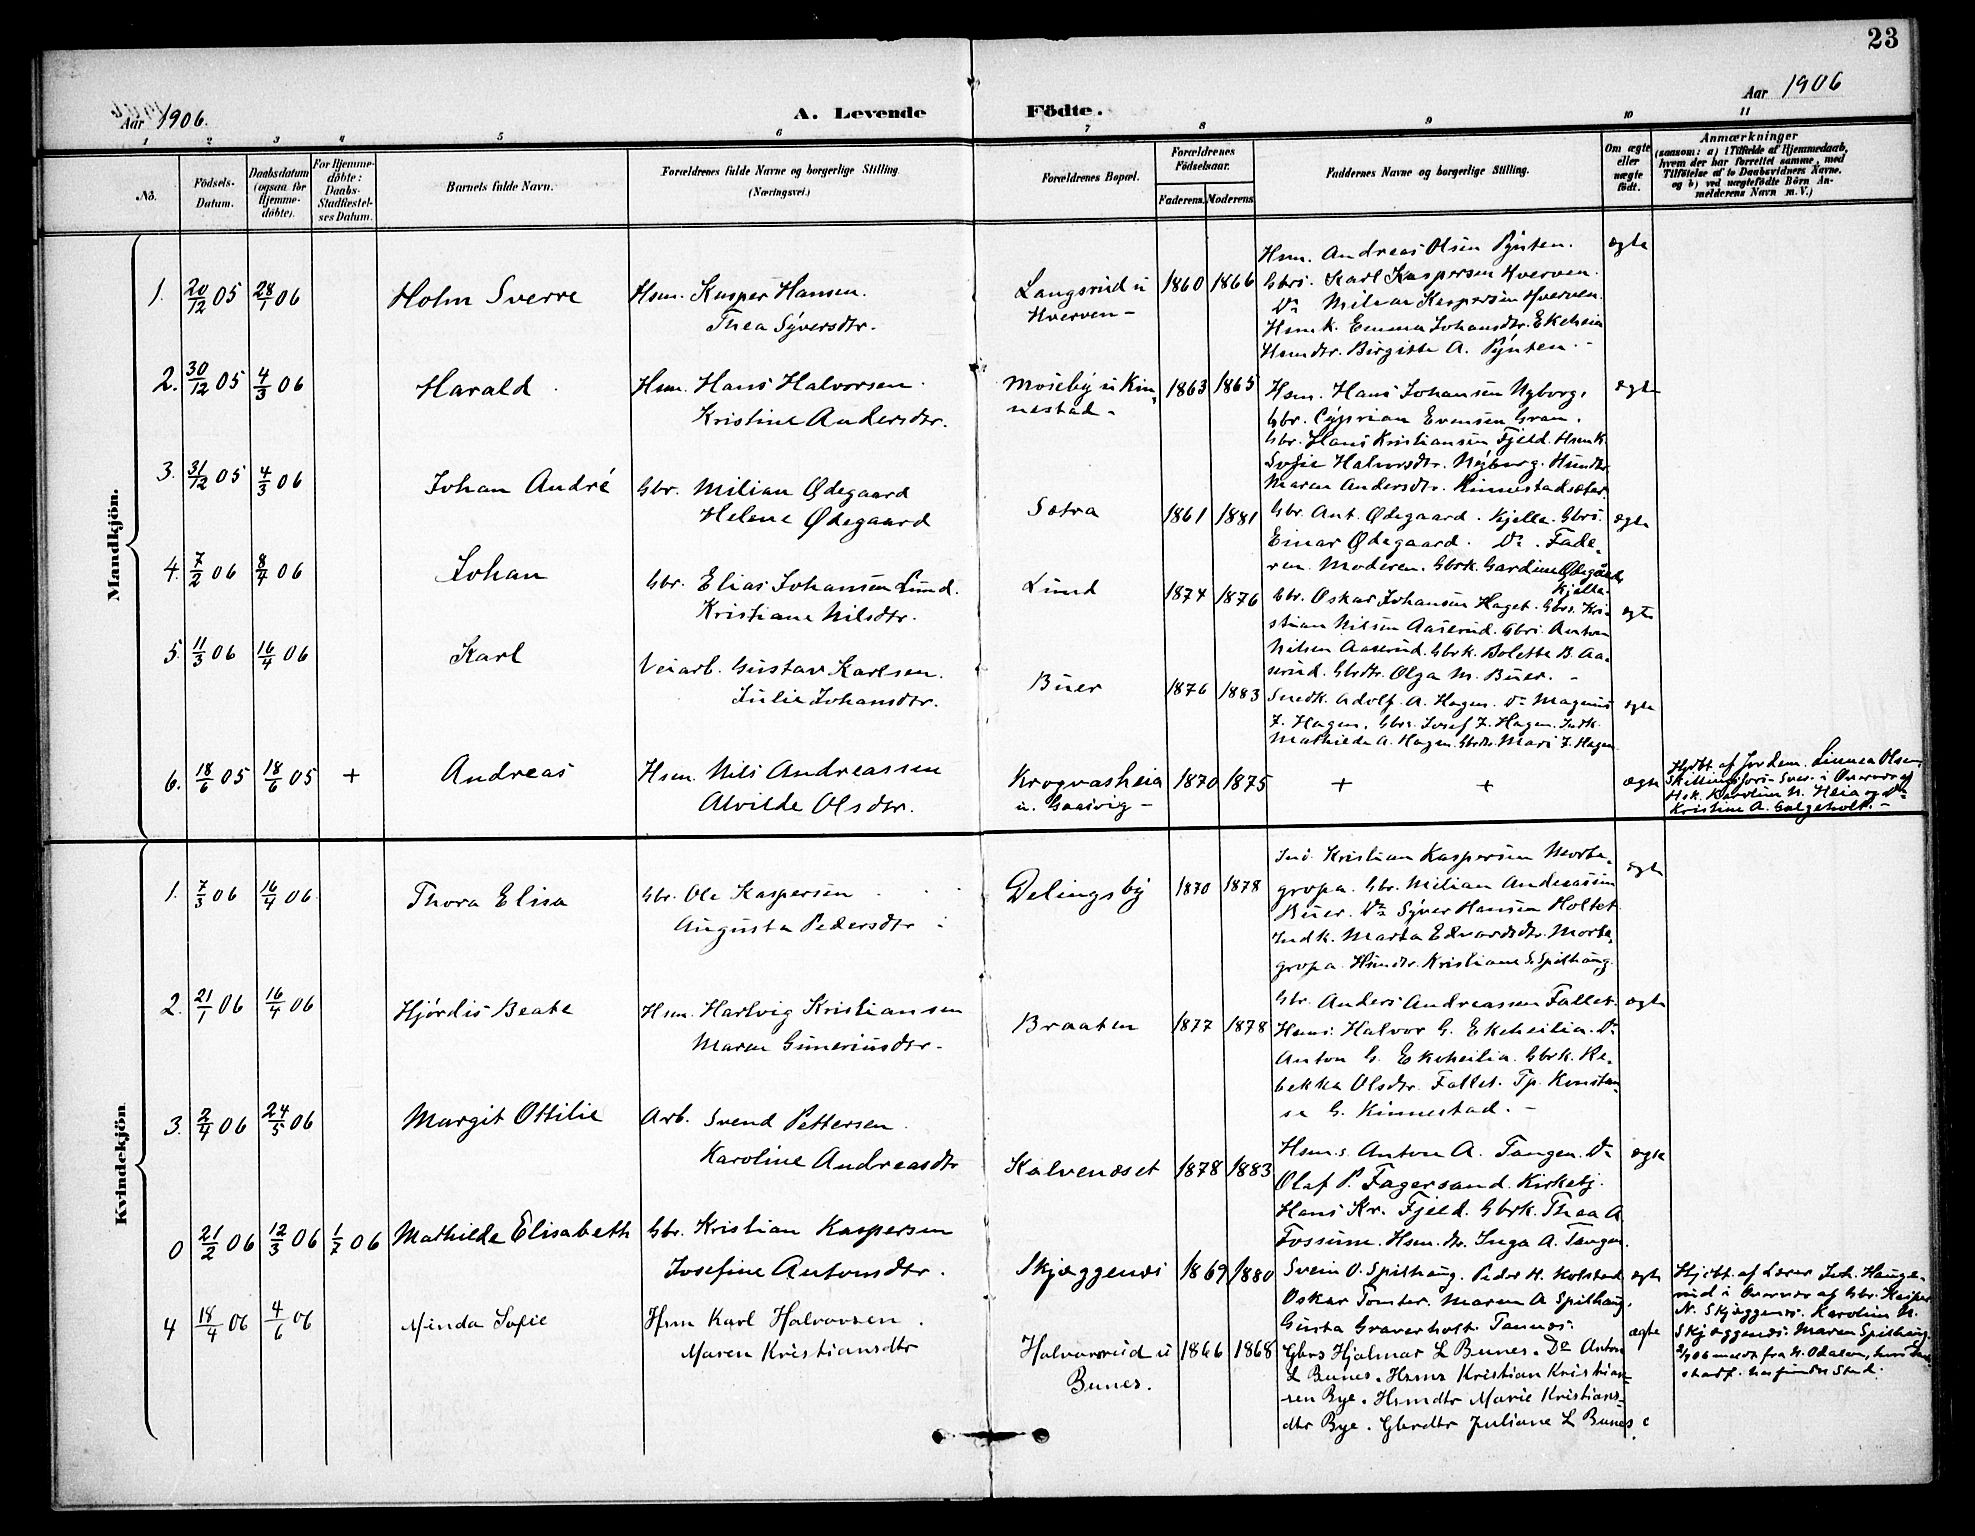 23
Aar 1906.
A. Levende Födte.
Aar 1906
1 2 3 4 5 6 7 8 9 10 11
No.
Födsels-Datum.
Daabsdatum (ogsaa for Hjemme-döbte).
For Hjemme-döbte: Daabs-Stadfæstel-ses Datum.
Barnets fulde Navn.
Forældrenes fulde Navne og borgerlige Stilling
(Næringsvei.)
Forældrenes Bopæl.
Forældrenes Födselsaar.
Faderens. Moderens.
Faddernes Navne og borgerlige Stilling.
Om ægte eller uægte födt.
Anmærkninger
(saasom: a) i Tilfælde af Hjemmedaab,
hvem der har forrettet samme, med
Tilföielse af to Daabsvidners Navne.
og b) ved uægtefödte Börn An-
melderens Navn m.V.)
Mandkjön.
1. 20/12 05 28/1 06 Holm Sverre
Hsm. Kasper Hansen.
Thea Syversdtr.
Langsrud u
Hverven-
1860 1866
Hsm. Andreas Olsen Pynten.
Gbrs. Karl Kaspersen Hverven.
Do Milian Kaspersen Hverven.
Hsmk. Emma Johansdtr. Ekeheia
Hsmdtr. Birgitte A. Pynten. -
ægte
2. 30/12 05 4/3 06 Harald
Hsm. Hans Halvorsen.
Kristine Andersdtr.
Moseby u Kin-
nestad-
1863 1865
Hsm. Hans Johansen Nyborg.
Gbr. Cyprian Evensen Gran.
Gbr. Hans Kristiansen Fjeld. Hsmk.
Sofie Halvorsdtr. Nyborg. Hsmdtr.
Maren Andersdtr. Kinnestadsæter.
ægte
3. 31/12 05 4/3 06 Johan André
Gbr. Milian Ødegaard
Helene Ødegaard
Sætra
1861 1881
Gbr. Ant. Ødegaard. Kjelle. Gbrs.
Einar Ødegaard. Do. Fade-
ren. Moderen. Gbrk. Gardine Ødegaard
Kjelle-
ægte
4. 7/2 06 8/4 06 Johan
Gbr. Elias Johansen Lund.
Kristiane Nilsdtr.
Lund
1874 1876
Gbr. Oskar Johansen Haget. Gbrs. Kri-
stian Nilsen Aaserud. Gbrs. Anton
Nilsen Aaserud. Gbrk. Bolette B. Aa-
serud. Gbrdtr. Olga M. Buer. -
ægte
5. 11/3 06 16/4 06 Karl
Veiarb. Gustav Karlsen.
Julie Johansdtr.
Buer
1876 1883
Snedk. Adolf. A. Hagen. Do Magnus
J. Hagen. Gbrs. Josef J. Hagen. Indk.
Mathilde A. Hagen. Gbrdtr. Mari J. Hagen
ægte
6. 18/6 05 18/6 05 + Andreas
Hsm. Nils Andreassen
Alvilde Olsdtr.
Krogvasheia
u. Gaasvig-
1870 1875
+ +
ægte
Hjdbt af Jordem. Linnea Olsen
Skillingsfors- Sver. i Overvær af
Hsk. Karoline N. Heia og Do
Kristine A. Galgeholt. -
Kvindekjön
1. 7/3 06 16/4 06 Thora Elisa
Gbr. Ole Kaspersen
Augusta Pedersdtr
Delingsby
1870 1878
Ind. Kristian Kaspersen Morte-
gropa. Gbr. Milian Andreassen
Buer. Do Syver Hansen Holtet.
Indk. Marta Edvardsdtr. Morte-
gropa. Hsmdtr. Kristiane S. Spilhaug.
ægte
2. 21/1 06 16/4 06 Hjördis Beate
Hsm. Hartvig Kristiansen
Maren Guneriusdtr.
Braaten
1877 1878
Gbr. Anders Andreassen Fallet.
Hsms. Halvor G. Ekeheilia. Do
Anton G. Ekeheilia. Gbrk. Re-
bekka Olsdtr. Fallet. Tp. Konstan-
se G. Kinnestad. -
ægte
3. 2/4 06 24/5 06 Margit Ottilie
Arb. Svend Pettersen
Karoline Andreasdtr
Kalveneset
1878 1883
Hsms. Anton A. Tangen. Do
Olaf P. Fagersand. Kirkebj.
Hans Kr. Fjeld. Gbrk. Thea A
Fossum. Hsm.dtr. Inga A. Tangen.
ægte
0 21/2 06 12/3 06 1/7 06 Mathilde Elisabeth
Gbr. Kristian Kaspersen
Josefine Antonsdtr.
Skjæggenes
1869 1880
Svein O. Spilhaug. Peder H. Kolstad
Oskar Tomter. Maren A Spilhaug.
Gusta Graverholt. Tannes.
ægte
Hjdbt. af Lærer Joh. Hauge-
rud i Overvær af Gbr. Kasper
N. Skjæggenes. Karoline N.
Skjæggenes. Maren Spilhaug.
meldt fra N. Odalen, hvor
stadf. har fundet Sted.
4 18/4 06 4/6 06 Minda Sofie
Hsm Karl Halvorsen.
Maren Kristiansdtr
Halvorsrud u
Bunes.
1866 1868
Gbrs Hjalmar L Bunes. Do Anton
L Bunes. Hsms Kristian Kristian-
sen Bye. Hsmdtr Marie Kristians-
dtr Bye. Gbrdtr Juliane L Bunes.
ægte